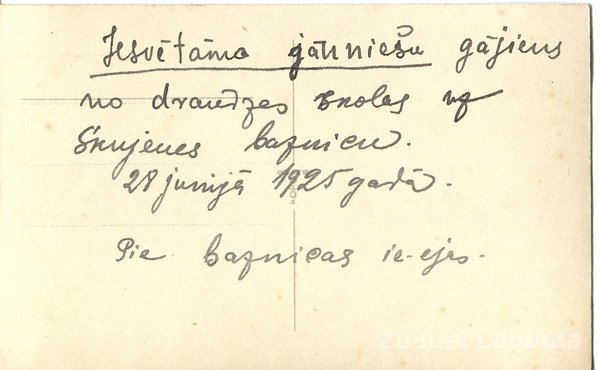 Iesvētāmo jauniešu gājiens
no draudzes skolas uz
Skujenes baznīcu.
28 jūnijā 1925 gadā.
Pie baznīcas ie-ejas.
ZUDUSI LATVIJA